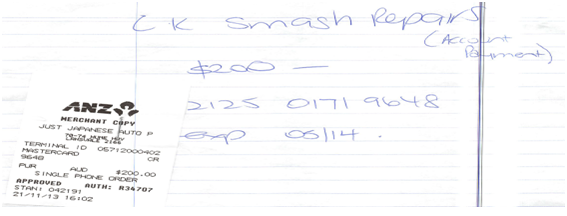 CK Smash Repairs
(Account Payment)
$200 —
2125 0171 9648
exp 05/14.
ANZ
MERCHANT COPY
JUST JAPANESE AUTO P
LANSVALE 2166
TERMINAL ID 05712000402
MASTERCARD CR
9648
PUR AUD $200.00
SINGLE PHONE ORDER
APPROVED AUTH: R34707
STAN: 042191
21/11/13 16:02